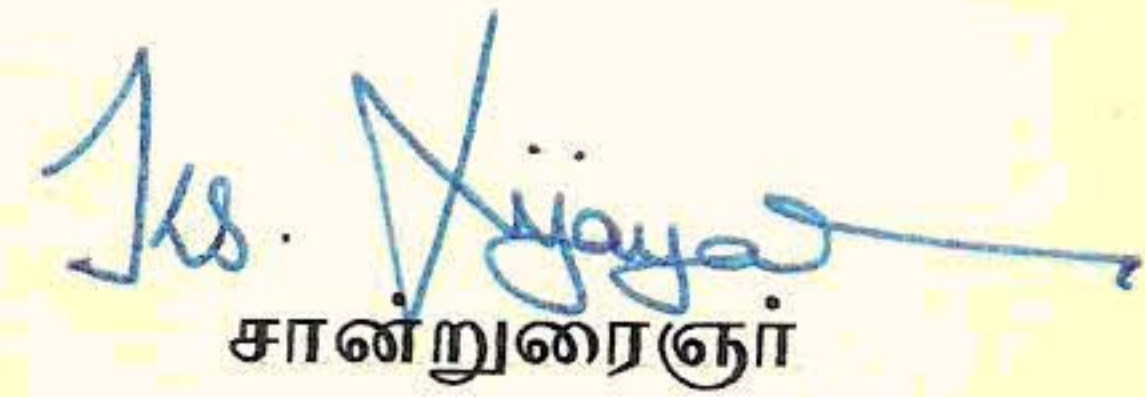 Jks. Vijaya
சான்றுரைஞர்